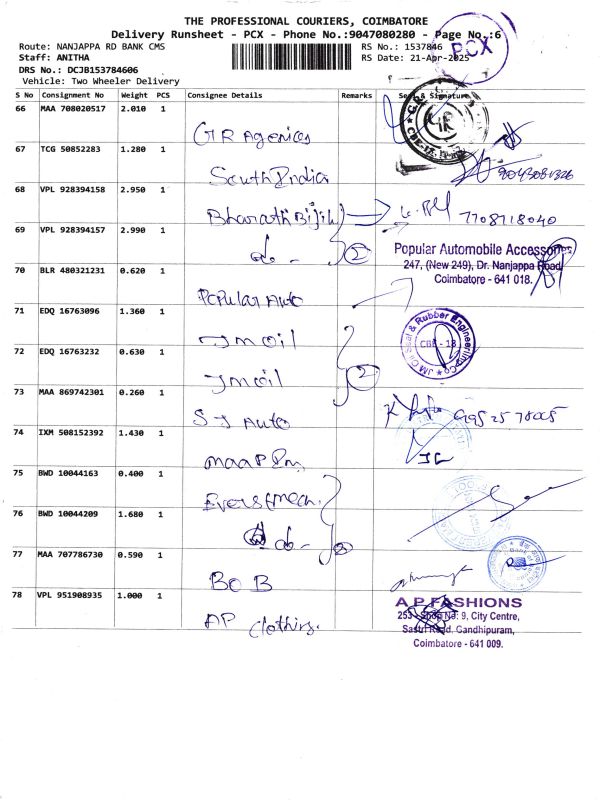 THE PROFESSIONAL COURIERS, COIMBATORE
Delivery Runsheet - PCX - Phone No.:9047080280 - Page No.:6
Route: NANJAPPA RD BANK CMS RS No.: 1537846
Staff: ANITHA RS Date: 21-Apr-2025
DRS No.: DCJB153784606
Vehicle: Two Wheeler Delivery
PCX
S No Consignment No Weight PCS Consignee Details Remarks Seal & Signature
66 MAA 708020517 2.010 1
GR Agencies
67 TCG 50852283 1.280 1
South India
68 VPL 928394158 2.950 1
Bharath Bijili 7708718040
69 VPL 928394157 2.990 1
do - 2
Popular Automobile Accessories
247, (New 249), Dr. Nanjappa Road,
Coimbatore - 641 018.
70 BLR 480321231 0.620 1
Popular Auto
71 EDQ 16763096 1.360 1
Jm oil
JM Oil Seal & Rubber Engineering Co
CBE - 18
72 EDQ 16763232 0.630 1
Jm oil 2
73 MAA 869742301 0.260 1
SJ Auto
74 IXM 508152392 1.430 1
75 BWD 10044163 0.400 1
76 BWD 10044209 1.680 1
do - 2
77 MAA 707786730 0.590 1
BOB
78 VPL 951908935 1.000 1
AP Clothins.
A.P.FASHIONS
253 - Shop No: 9, City Centre,
Sastri Road, Gandhipuram,
Coimbatore - 641 009.